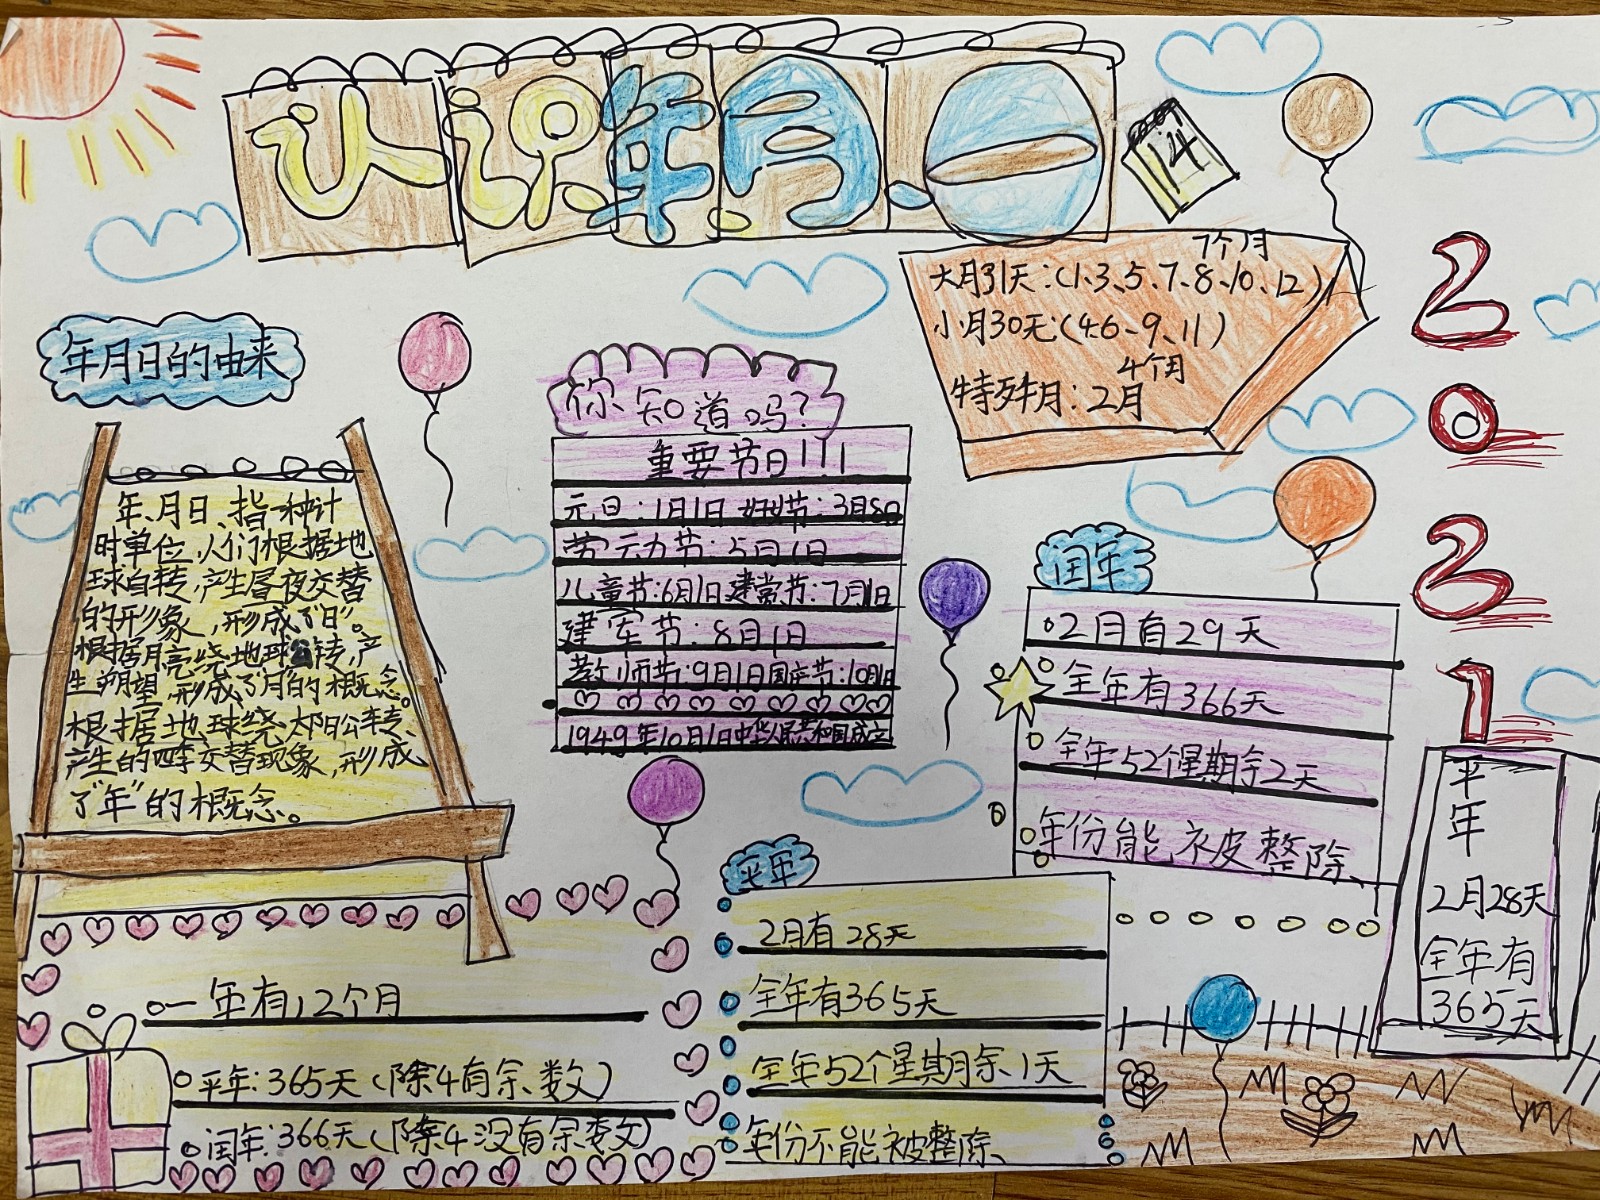 认识年、月、日
14
7个月
大月31天:(1、3、5、7、8、10、12)
小月30天:(4、6、9、11)
4个月
特殊月:2月
2
0
2
1
年月日的由来
年、月、日、指一种计
时单位,人们根据地
球自转,产生昼夜交替
的形象,形成了“日”。
根据月亮绕地球转,产
生朔望,形成了“月”的概念。
根据地球绕太阳公转、
产生的四季交替现象,形成
了“年”的概念。
你知道吗?
重要节日!!!
元旦:1月1日 妇女节:3月8日
劳动节:5月1日
儿童节:6月1日 建党节:7月1日
建军节:8月1日
教师节:9月1日 国庆节:10月1日
1949年10月1日中华人民共和国成立
闰年
2月有29天
全年有366天
全年52个星期余2天
年份能被整除、
平年
2月28天
全年有
365天
平年
2月有28天
全年有365天
全年52个星期余1天
年份不能被整除、
一年有12个月
平年:365天(除4有余数)
闰年:366天(除4没有余数)